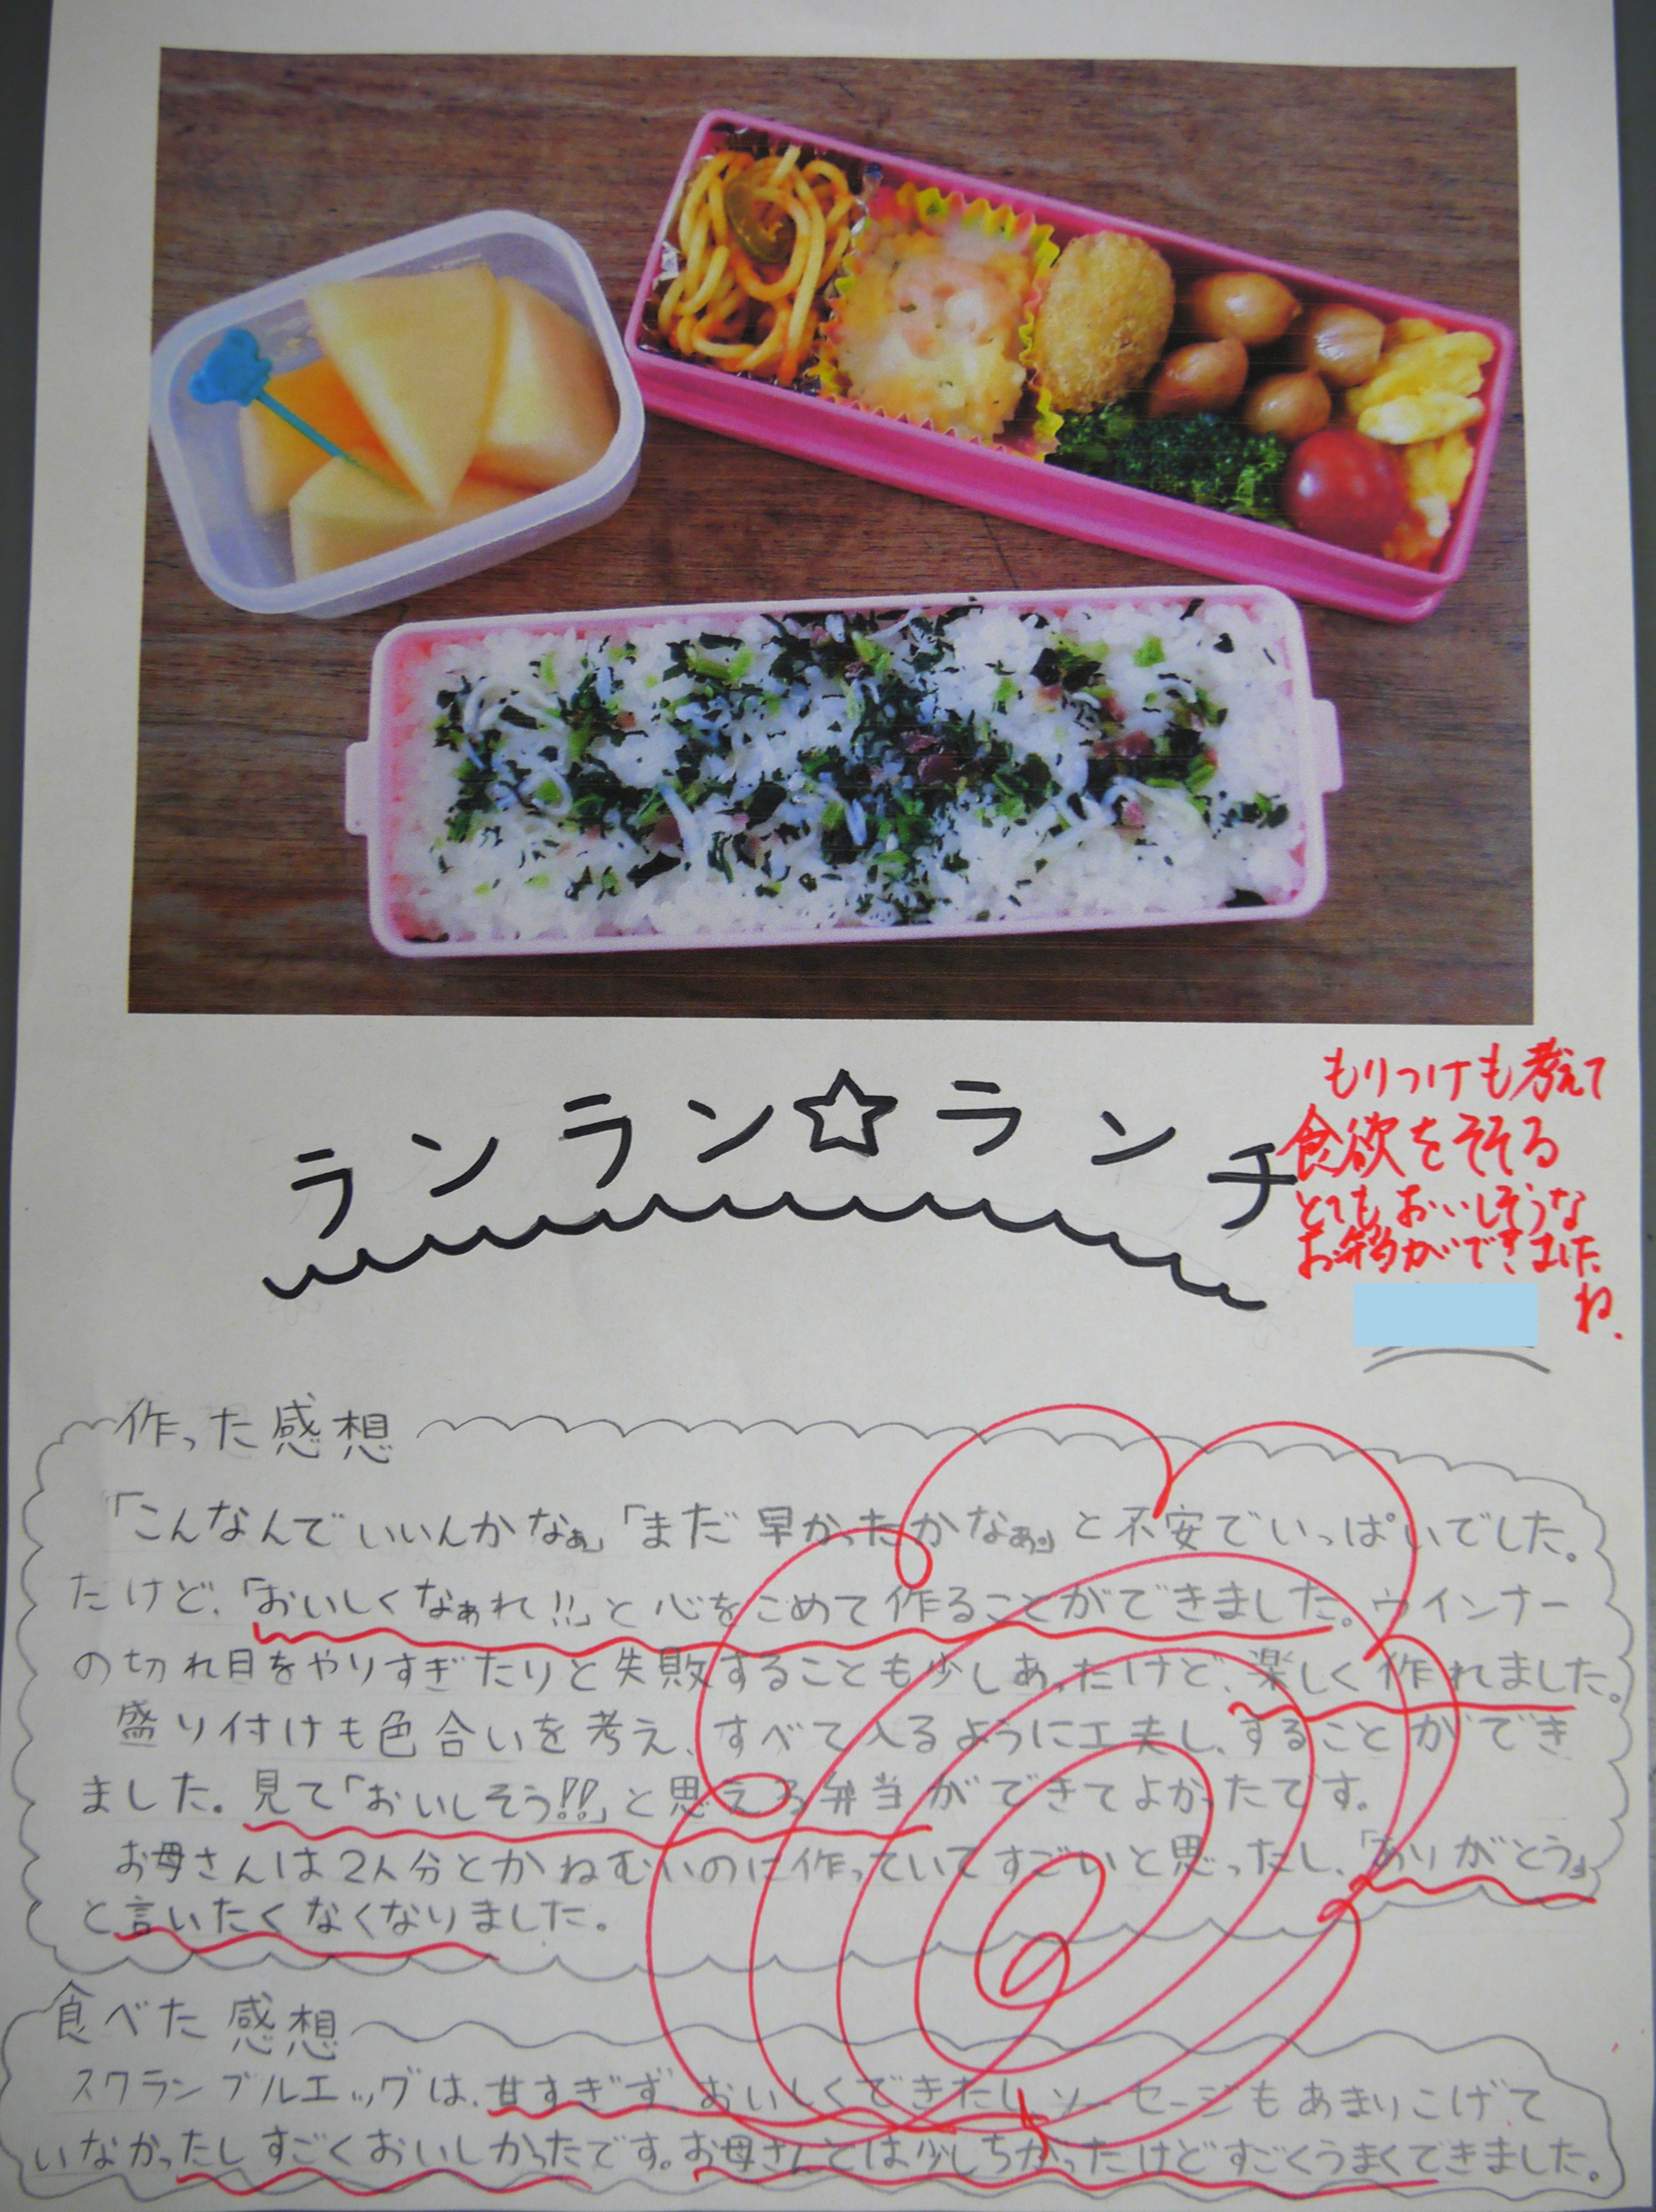 ランラン☆ランチ
もりつけも考えて
食欲をそそる
とてもおいしそうな
お弁当ができました
ね.
作った感想
「こんなんでいいんかなぁ」「まだ早かったかなぁ。」と不安でいっぱいでした。
たけど、「おいしくなぁれ!!」と心をこめて作ることができました。ウインナー
の切れ目をやりすぎたりと失敗することも少しあったけど、楽しく作れました。
盛り付けも色合いを考え、すべて入るように工夫し、することができ
ました。見て「おいしそう!!」と思える弁当ができてよかったです。
お母さんは2人分とかねむいのに作っていてすごいと思ったし、「ありがとう。」
と言いたくなくなりました。
食べた感想
スクランブルエッグは、甘すぎず、おいしくできたし、ソーセージもあまりこげて
いなかったしすごくおいしかったです。お母さんとは少しちがったけどすごくうまくできました。